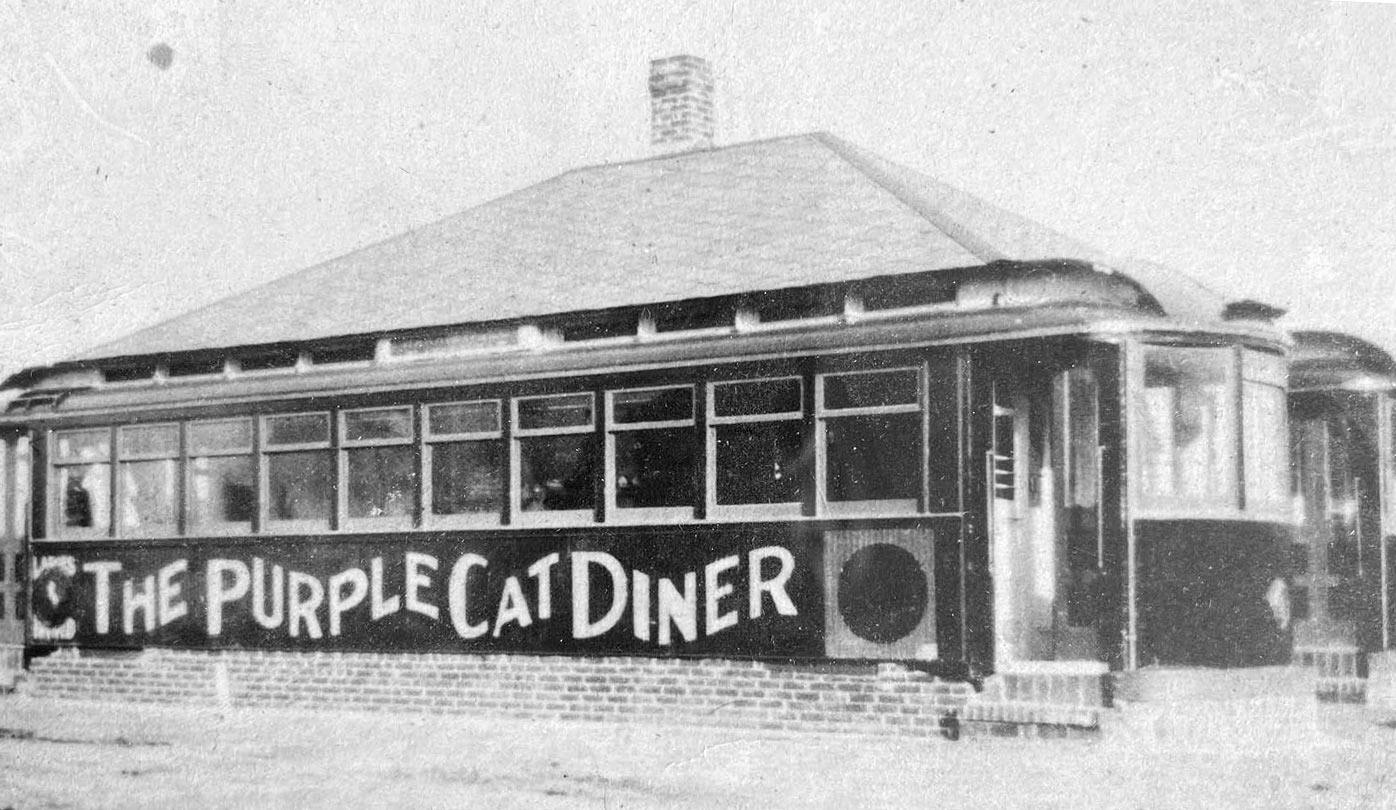 THE PURPLE CAT DINER